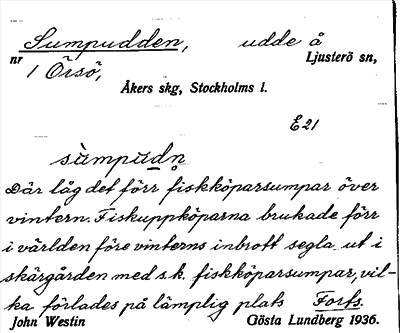 Sumpudden, udde å
nr 1 Örsö, Ljusterö sn,
Åkers skg, Stockholms l.
E21
sùmpu̲dn̥
Där låg det förr fiskköparsumpar över
vintern. Fiskuppköparna brukade förr
i världen före vinterns inbrott segla ut i
skärgården med s.k. fiskköparsumpar, vil-
ka förlades på lämplig plats Forfs.
John Westin Gösta Lundberg 1936.